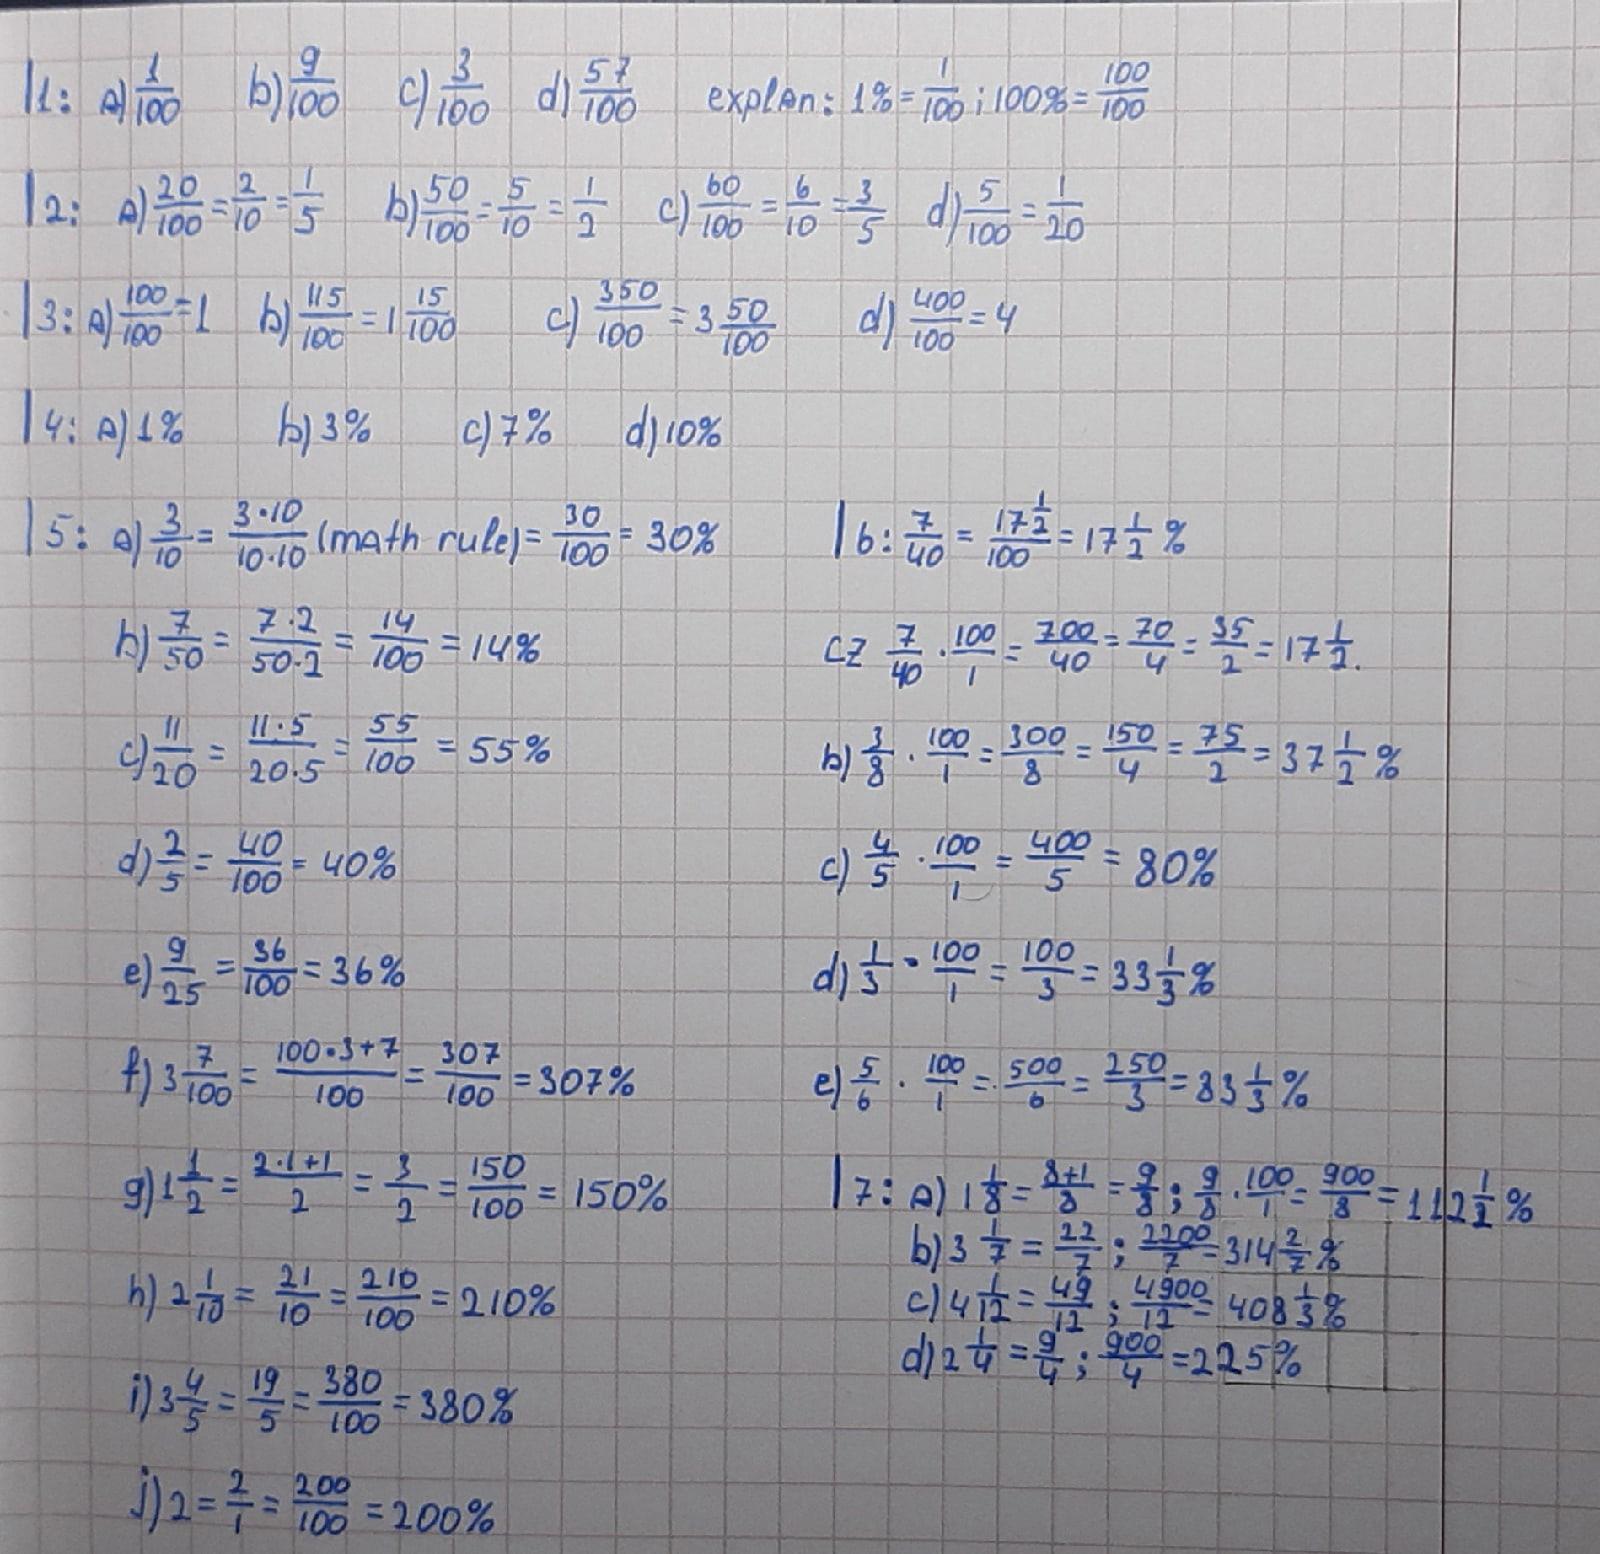 |1: a) 1/100 b) 9/100 c) 3/100 d) 57/100 explan: 1% = 1/100 ; 100% = 100/100
|2: a) 20/100 = 2/10 = 1/5 b) 50/100 = 5/10 = 1/2 c) 60/100 = 6/10 = 3/5 d) 5/100 = 1/20
|3: a) 100/100 = 1 b) 115/100 = 1 15/100 c) 350/100 = 3 50/100 d) 400/100 = 4
|4: a) 1% b) 3% c) 7% d) 10%
|5: a) 3/10 = 3·10/10·10 (math rule) = 30/100 = 30%
b) 7/50 = 7·2/50·2 = 14/100 = 14%
c) 11/20 = 11·5/20·5 = 55/100 = 55%
d) 2/5 = 40/100 = 40%
e) 9/25 = 36/100 = 36%
f) 3 7/100 = 100·3+7/100 = 307/100 = 307%
g) 1 1/2 = 2·1+1/2 = 3/2 = 150/100 = 150%
h) 2 1/10 = 21/10 = 210/100 = 210%
i) 3 4/5 = 19/5 = 380/100 = 380%
j) 2 = 2/1 = 200/100 = 200%
|6: 7/40 = 17 1/2/100 = 17 1/2 %
cz 7/40 · 100/1 = 700/40 = 70/4 = 35/2 = 17 1/2.
b) 3/8 · 100/1 = 300/8 = 150/4 = 75/2 = 37 1/2 %
c) 4/5 · 100/1 = 400/5 = 80%
d) 1/3 · 100/1 = 100/3 = 33 1/3 %
e) 5/6 · 100/1 = 500/6 = 250/3 = 83 1/3 %
|7: a) 1 1/8 = 8+1/8 = 9/8 ; 9/8 · 100/1 = 900/8 = 112 1/2 %
b) 3 1/7 = 22/7 ; 2200/7 = 314 2/7 %
c) 4 1/12 = 49/12 ; 4900/12 = 408 1/3 %
d) 2 1/4 = 9/4 ; 900/4 = 225%